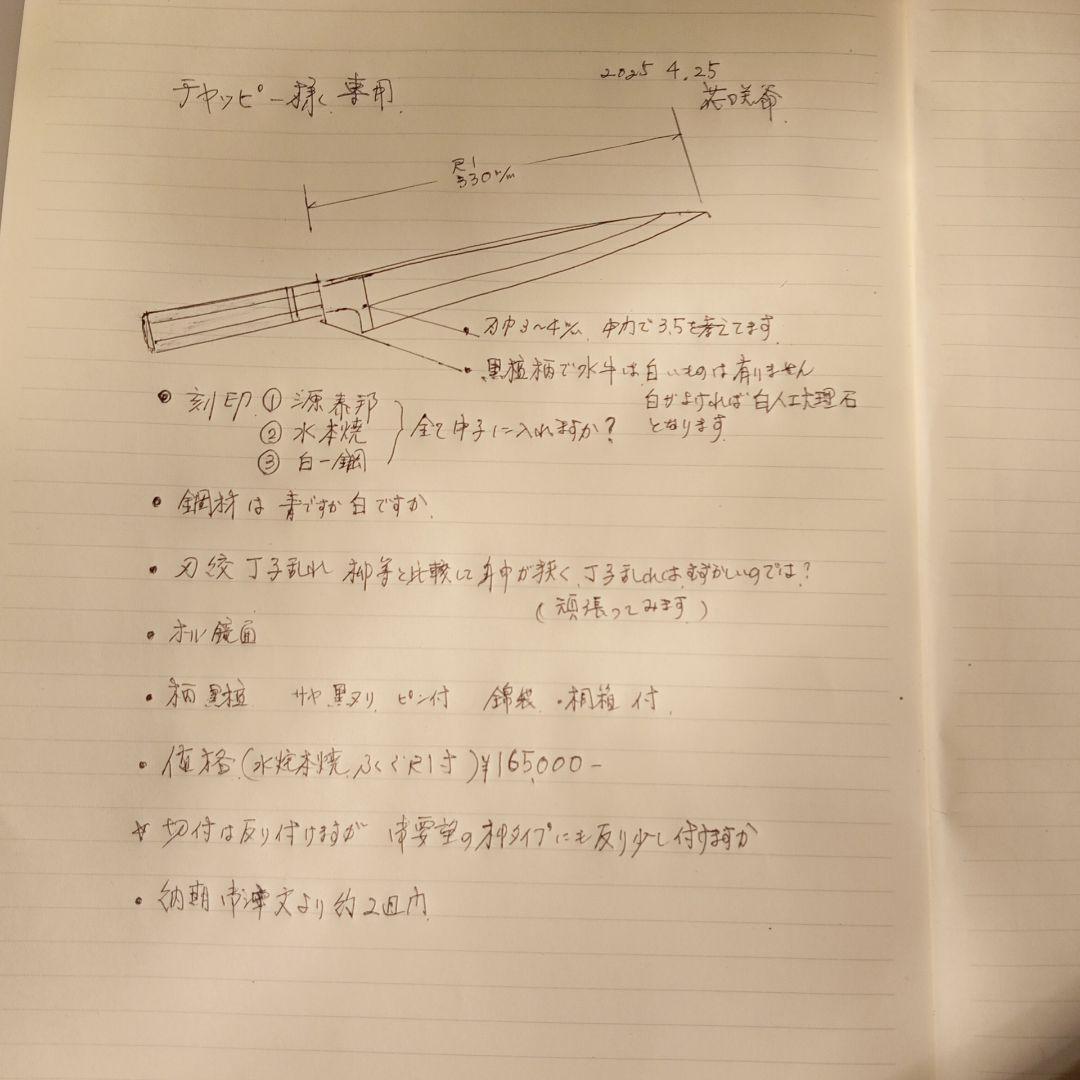 2025 4.25
チャッピー様専用
花咲爺
尺1
330m/m
・刃巾3〜4m/m 中力で3.5を考えてます
・黒檀柄で水牛は白いものは有りません
白がよければ白人工大理石
となります
・刻印 ① 源泰邦
② 水本焼
③ 白一鋼
全て中子に入れますか?
・鋼材は青ですか白ですか
・刃紋丁子乱れ 柳等と比較して身巾が狭く、丁子乱れはむずかしいのでは?
(頑張ってみます)
・オール鏡面
・柄黒檀 サヤ黒ヌリ ピン付 錦袋・桐箱付
・価格(水焼本焼ふぐ尺1寸)¥165,000-
☆切付は反り付けますが 御要望の柳タイプにも反り少し付けますか
・納期御注文より約2週内